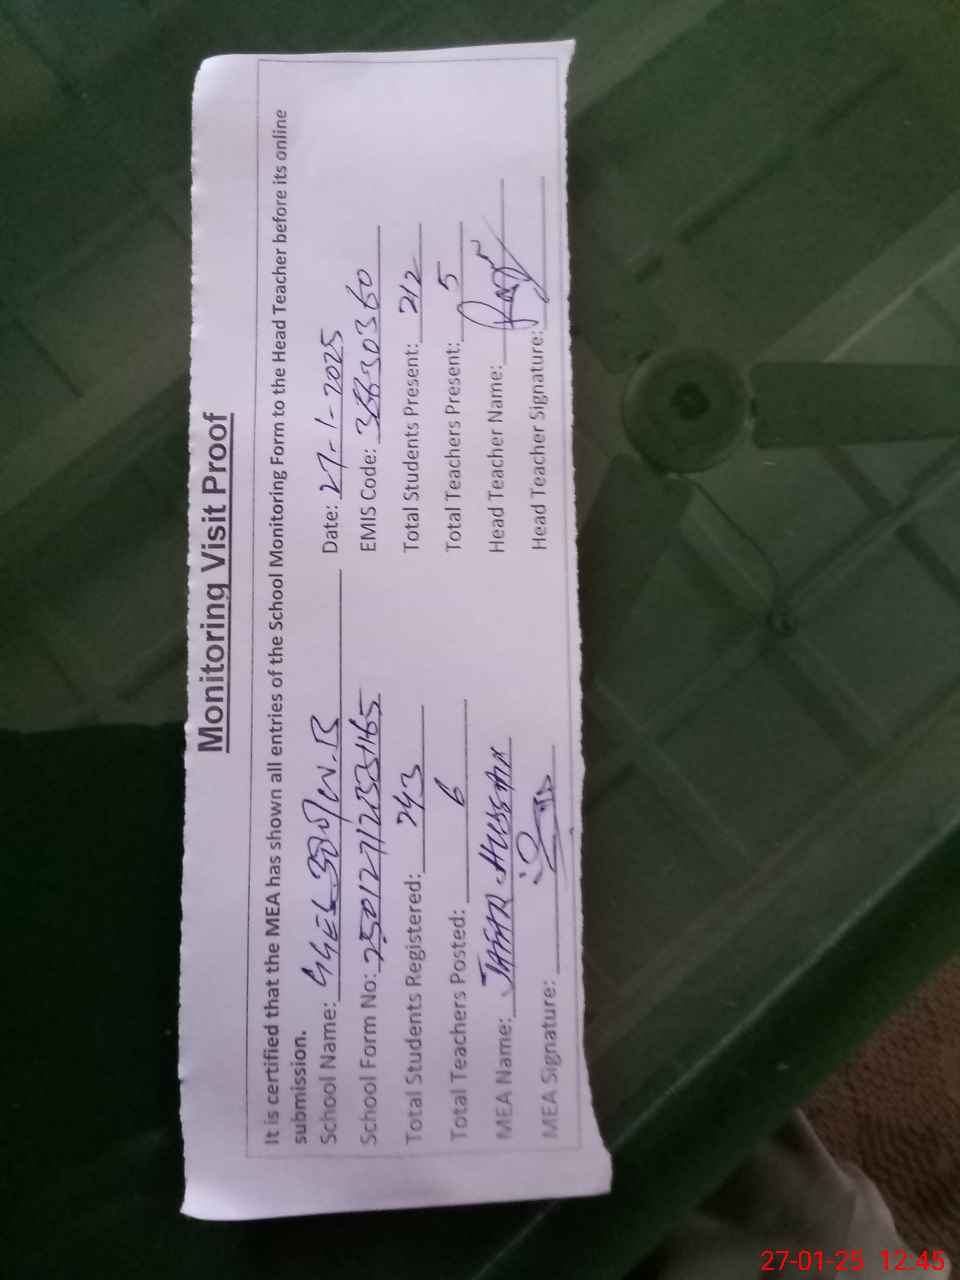 Monitoring Visit Proof
It is certified that the MEA has shown all entries of the School Monitoring Form to the Head Teacher before its online
submission.
School Name: GGES 389/W.B Date: 27-1-2025
School Form No: EMIS Code:
Total Students Registered: 243 Total Students Present: 212
Total Teachers Posted: 6 Total Teachers Present: 5
MEA Name: JAFAR HUSSAIN Head Teacher Name:
MEA Signature: Head Teacher Signature:
27-01-25 12:45